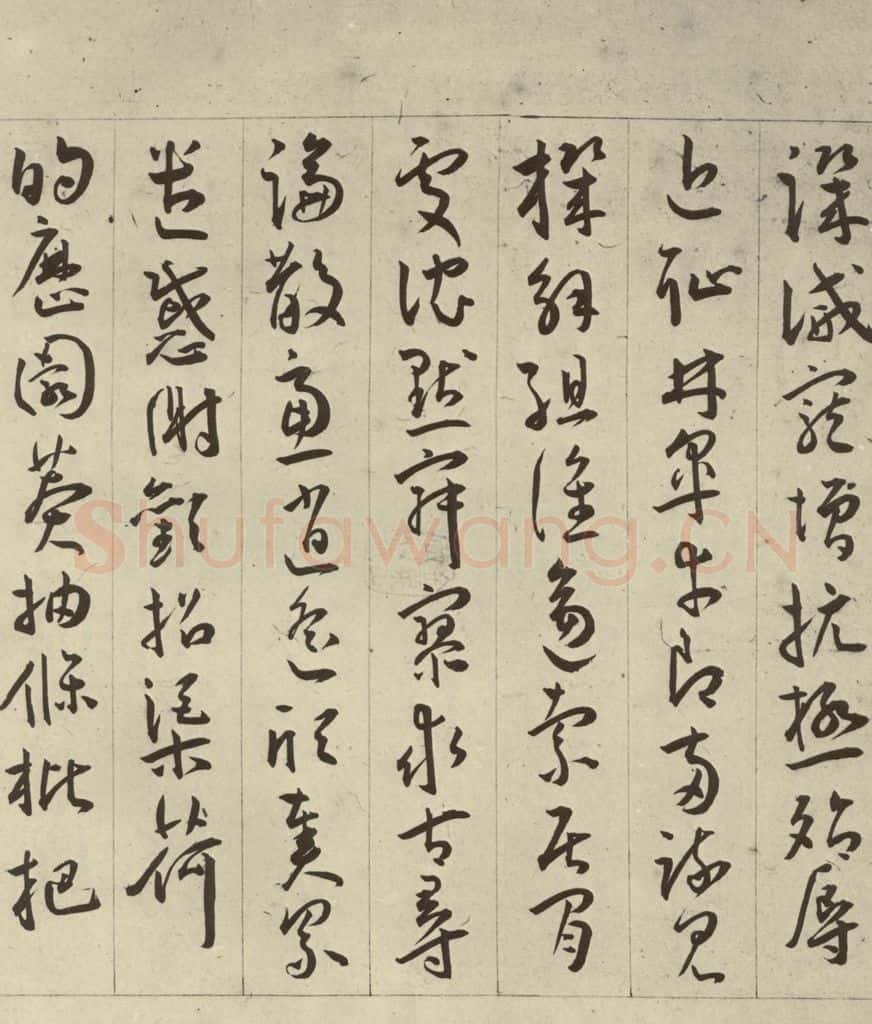 譏誡寵增抗極殆辱
近恥林皋幸即兩疏見
機解組誰逼索居閒
處沉默寂寥求古尋
論散慮逍遙欣奏累
遣慼謝歡招渠荷
的歷園莽抽條枇杷
Shufawang.CN